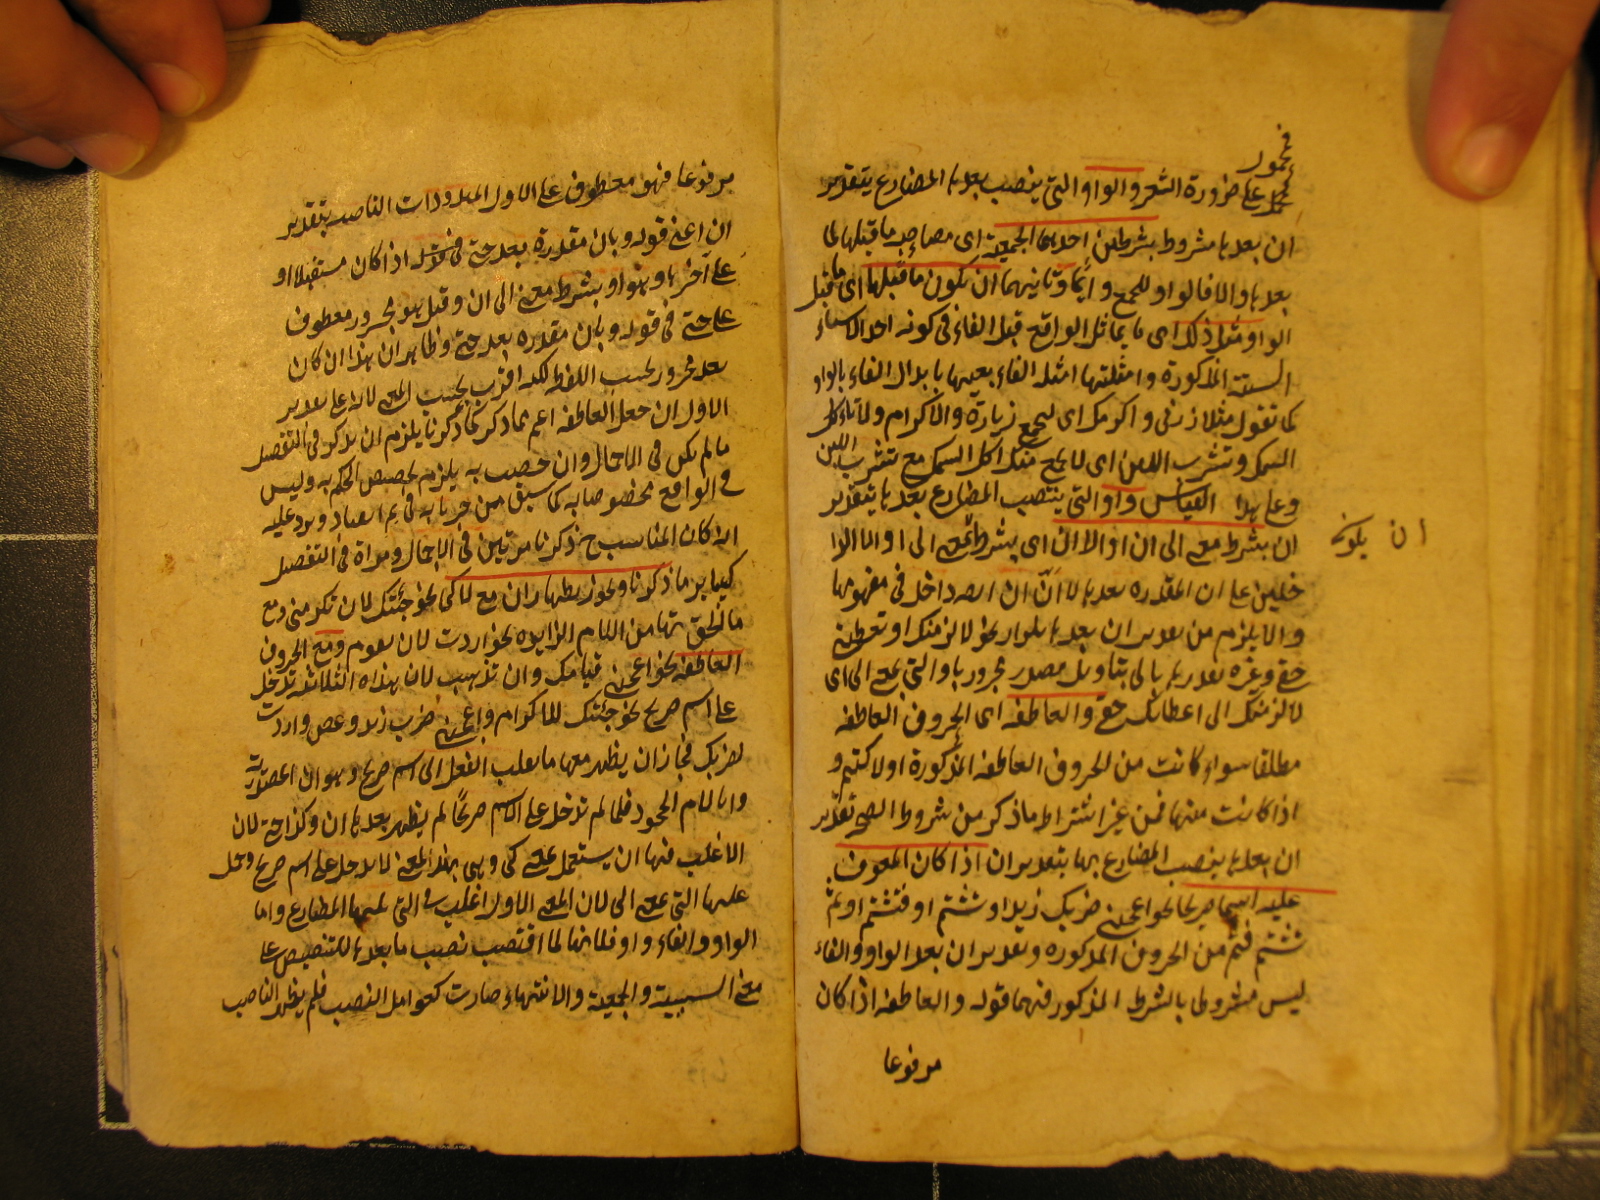 فمحمول
على ضرورة الشعر والواو التي ينصب بعدها المضارع بتقدير
ان بعدها مشروط بشرطين احدهما الجمعية اى مصاحبة ما قبلها لما
بعدها والا فالواو للجمع دائما وثانيهما ان يكون ما قبلها اى ما قبل
الواو مثل ذلك اى ما يماثل الواقع قبل الفاء فى كونه احد الاشياء
الستة المذكورة وامثلتها امثلة الفاء بعينها بابدال الفاء بالواو
كما تقول مثلا زرنى واكرمك اى ليجتمع زيارة والاكرام ولا تأكل
السمك وتشرب اللبن اى لا يجتمع منك اكل السمك مع شرب اللبن
وعلى هذا القياس واو التي ينتصب المضارع بعدها بتقدير
ان بشرط معنى الى ان او الا ان اى بشرط ان يكون بمعنى الى او الا الدا
خلين على ان المقدرة بعدها لا ان ان ايضه داخل فى مفهومها
والا يلزم من تقدير ان بعدها تكرار نحو لالزمنك او تعطينى
حقى وغيره تقديرها بالى بتاويل مصدر مجرور باو التي بمعنى الى اى
لالزمنك الى اعطائك حقى والعاطفة اى الحروف العاطفة
مطلقا سواء كانت من الحروف العاطفة المذكورة اولا كثم و
اذا كانت منها فمن غير اشتراط ما ذكر من شروط الصحة تقدير
ان بعدها ينصب المضارع بها بتقدير ان اذا كان المعطوف
عليه اسما صريحا نحو اعجبنى ضربك زيدا وتشتم او فتشتم او ثم
تشتم فثم من الحروف المذكورة وتقدير ان بعد الواو والفاء
ليس مشروطا بالشرط المذكور فيهما قوله والعاطفة اذا كان
مرفوعا
ان يكون
مرفوعا فهو معطوف على الاول المعدودات الناصب بتقدير
ان اعنى قوله وبان مقدرة بعد حتى فى قوله اذا كان مستقبلا او
على آخرها وهو او بشرط معنى الى ان وقيل هو مجرور معطوف
على حتى فى قوله وبان مقدرة بعد حتى وظاهر ان هذا ان كان
بعد مجرور بحسب اللفظ لكنه اقرب بحسب المعنى لانه على تقدير
الاول ان جعل العاطفة اعم مما ذكر كما ذكرنا يلزم ان يذكر فى التفصيل
ما لم يكن فى الاجمال وان خصت به يلزم تخصيص الحكم به وليس
فى الواقع مخصوصا به كما سبق من جريانه فى ثم ايضا ويرد عليه
انه كان المناسب ح ذكرنا مرتين فى الاجمال ومرة فى التفصيل
كسائر ما ذكرنا ويجوز اظهار ان مع لام كى نحو جئتك لان تكرمنى ومع
ما الحق بها من اللام الزايدة نحو اردت لان تقوم ومع الحروف
العاطفة نحو اعجبنى قيامك وان تذهب لان هذه الثلاثة تدخل
على اسم صريح نحو جئتك للاكرام واعجبنى ضرب زيد وعضبه واردت
لضربك فجاز ان يظهر معها ما يقلب الفعل الى اسم صريح وهو ان المصدرية
واما لام الجحود فلما لم تدخل على الاسم صريحا لم يظهر بعدها ان وكذا حتى لان
الاغلب فيها ان يستعمل بمعنى كى وهى بهذا المعنى لا تدخل على اسم صريح وحمل
عليها التي بمعنى الى لان المعنى الاول اغلب فى التي تليها المضارع واما
الواو والفاء واو فلانها لما اقتضت نصب ما بعدها للتنصيص على
معنى السببية والجمعية والانتهاء صارت كعوامل النصب فلم يظهر الناصب